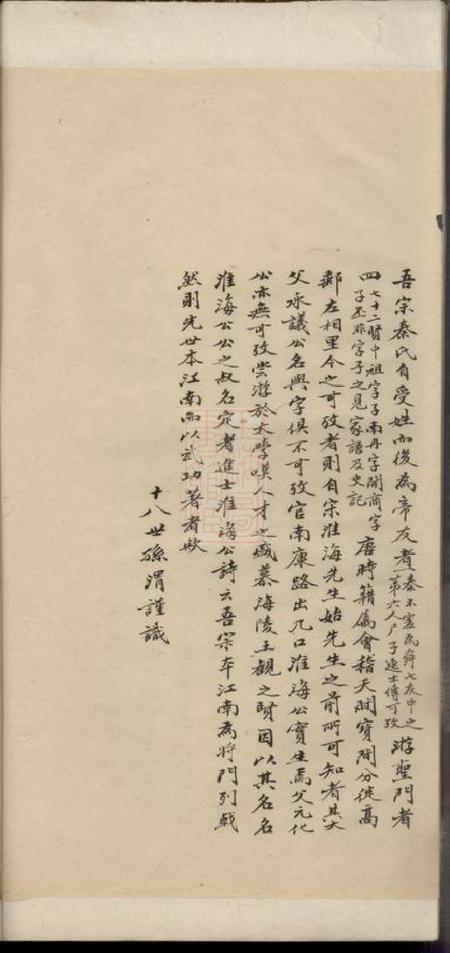 吾宗秦氏自受姓而後為帝友者一秦不虛為舜七友中之第六人尸子逸士傳可攷游聖門者
四七十二賢中祖字子南冉字開商字子丕非字子之見家語及史記唐時籍屬會稽天開寶間分徙高
郵左相里今之可攷者則自宋淮海先生始先生之前所可知者其大
父承議公名與字俱不可攷官南康路出九口淮海公實生焉父元化
公亦無可攷嘗游於太學嘆人才之盛慕海陵王觀之賢因以其名名
淮海公公之叔名定者進士淮海公詩云吾宗本江南為將門列戟
然則先世本江南而以武功著者歟
十八世孫渭謹識